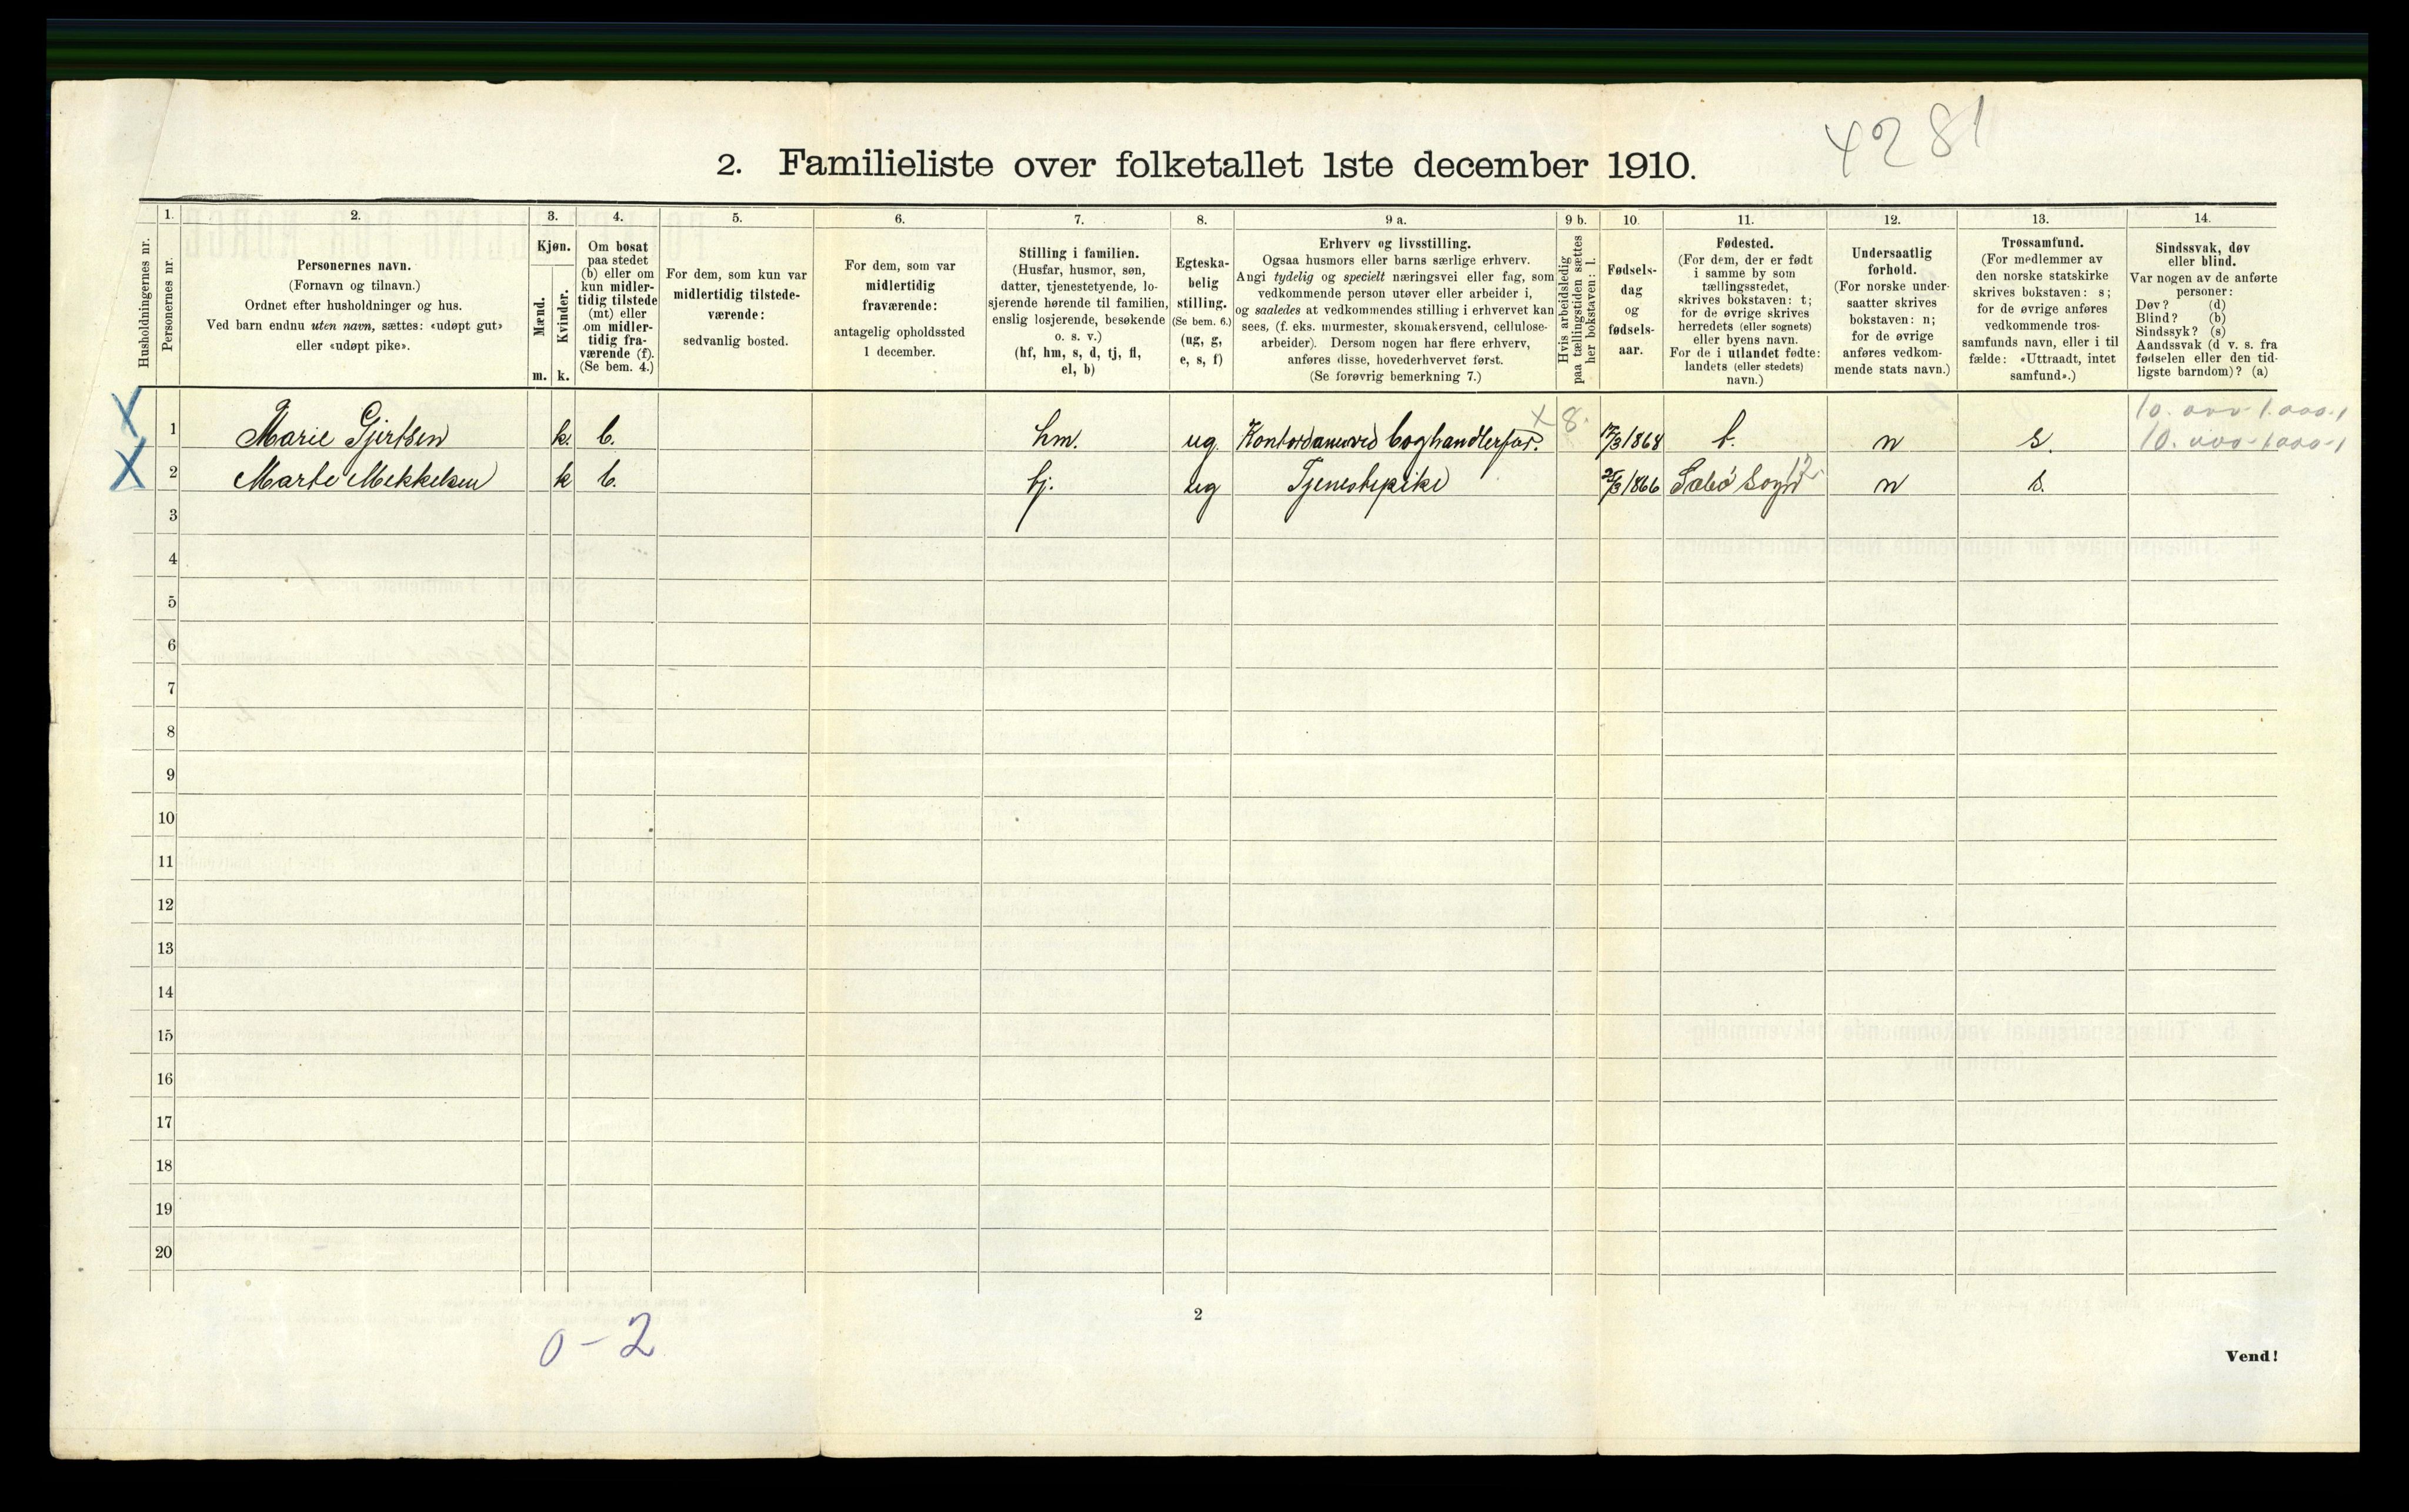 4281
2. Familieliste over folketallet 1ste december 1910.
Husholdningernes nr.
1.
Personernes nr.
2.
Personernes navn.
(Fornavn og tilnavn.)
Ordnet efter husholdninger og hus.
Ved barn endnu uten navn, sættes: «udøpt gut»
eller «udøpt pike».
3.
Kjøn.
Mænd.
Kvinder.
m. k.
4.
Om bosat
paa stedet
(b) eller om
kun midler-
tidig tilstede
(mt) eller
om midler-
tidig fra-
værende (f).
(Se bem. 4.)
5.
For dem, som kun var
midlertidig tilstede-
værende:
sedvanlig bosted.
6.
For dem, som var
midlertidig
fraværende:
antagelig opholdssted
1 december.
7.
Stilling i familien.
(Husfar, husmor, søn,
datter, tjenestetyende, lo-
sjerende hørende til familien,
enslig losjerende, besøkende
o. s. v.)
(hf, hm, s, d, tj, fl,
el, b)
8.
Egteska-
belig
stilling.
(Se bem. 6.)
(ug, g,
e, s, f)
9 a.
Erhverv og livsstilling.
Ogsaa husmors eller barns særlige erhverv.
Angi tydelig og specielt næringsvei eller fag, som
vedkommende person utøver eller arbeider i,
og saaledes at vedkommendes stilling i erhvervet kan
sees, (f. eks. murmester, skomakersvend, cellulose-
arbeider). Dersom nogen har flere erhverv,
anføres disse, hovederhvervet først.
(Se forøvrig bemerkning 7.)
9 b.
Hvis arbeidsledig
paa tællingstiden sættes
her bokstaven: l.
10.
Fødsels-
dag
og
fødsels-
aar.
11.
Fødested.
(For dem, der er født
i samme by som
tællingsstedet,
skrives bokstaven: t;
for de øvrige skrives
herredets (eller sognets)
eller byens navn.
For de i utlandet fødte:
landets (eller stedets)
navn.)
12.
Undersaatlig
forhold.
(For norske under-
saatter skrives
bokstaven: n;
for de øvrige
anføres vedkom-
mende stats navn.)
13.
Trossamfund.
(For medlemmer av
den norske statskirke
skrives bokstaven: s;
for de øvrige anføres
vedkommende tros-
samfunds navn, eller i til
fælde: «Uttraadt, intet
samfund».)
14.
Sindssvak, døv
eller blind.
Var nogen av de anførte
personer:
Døv? (d)
Blind? (b)
Sindssyk? (s)
Aandssvak (d v. s. fra
fødselen eller den tid-
ligste barndom)? (a)
10.000-1.000-1
X 1 Marie Gjertsen k. b. hm. ug. Kontordame ved boghandlerfor. x 8. 17/3 1868 t. n s. 10.000-1000-1
X 2 Marte Mekkelsen k b. tj. ug Tjenestepike 25/3 1866 Sæbø Sogn 12 n s.
3
4
5
6
7
8
9
10
11
12
13
14
15
16
17
18
19
20
2
0-2
Vend!